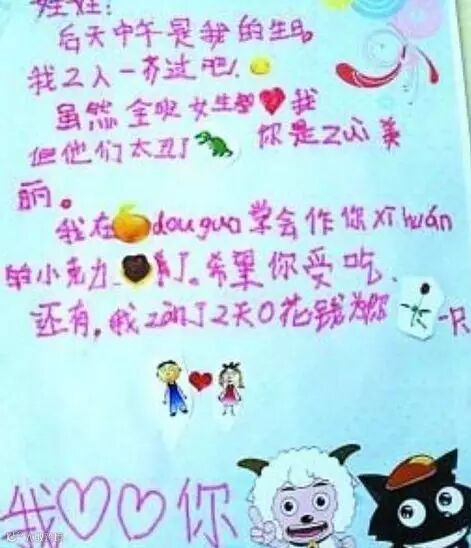 姓姓:
后天中午是我的生日
我2人一齐过吧!
虽然全班女生都 我
但他们太丑了 你是Zuì美
丽。
我在 dou guo 学会作你xǐ huán
的小克力 了.希望你受吃.
还有,我 了2天0花钱为你 一只
我♡♡你